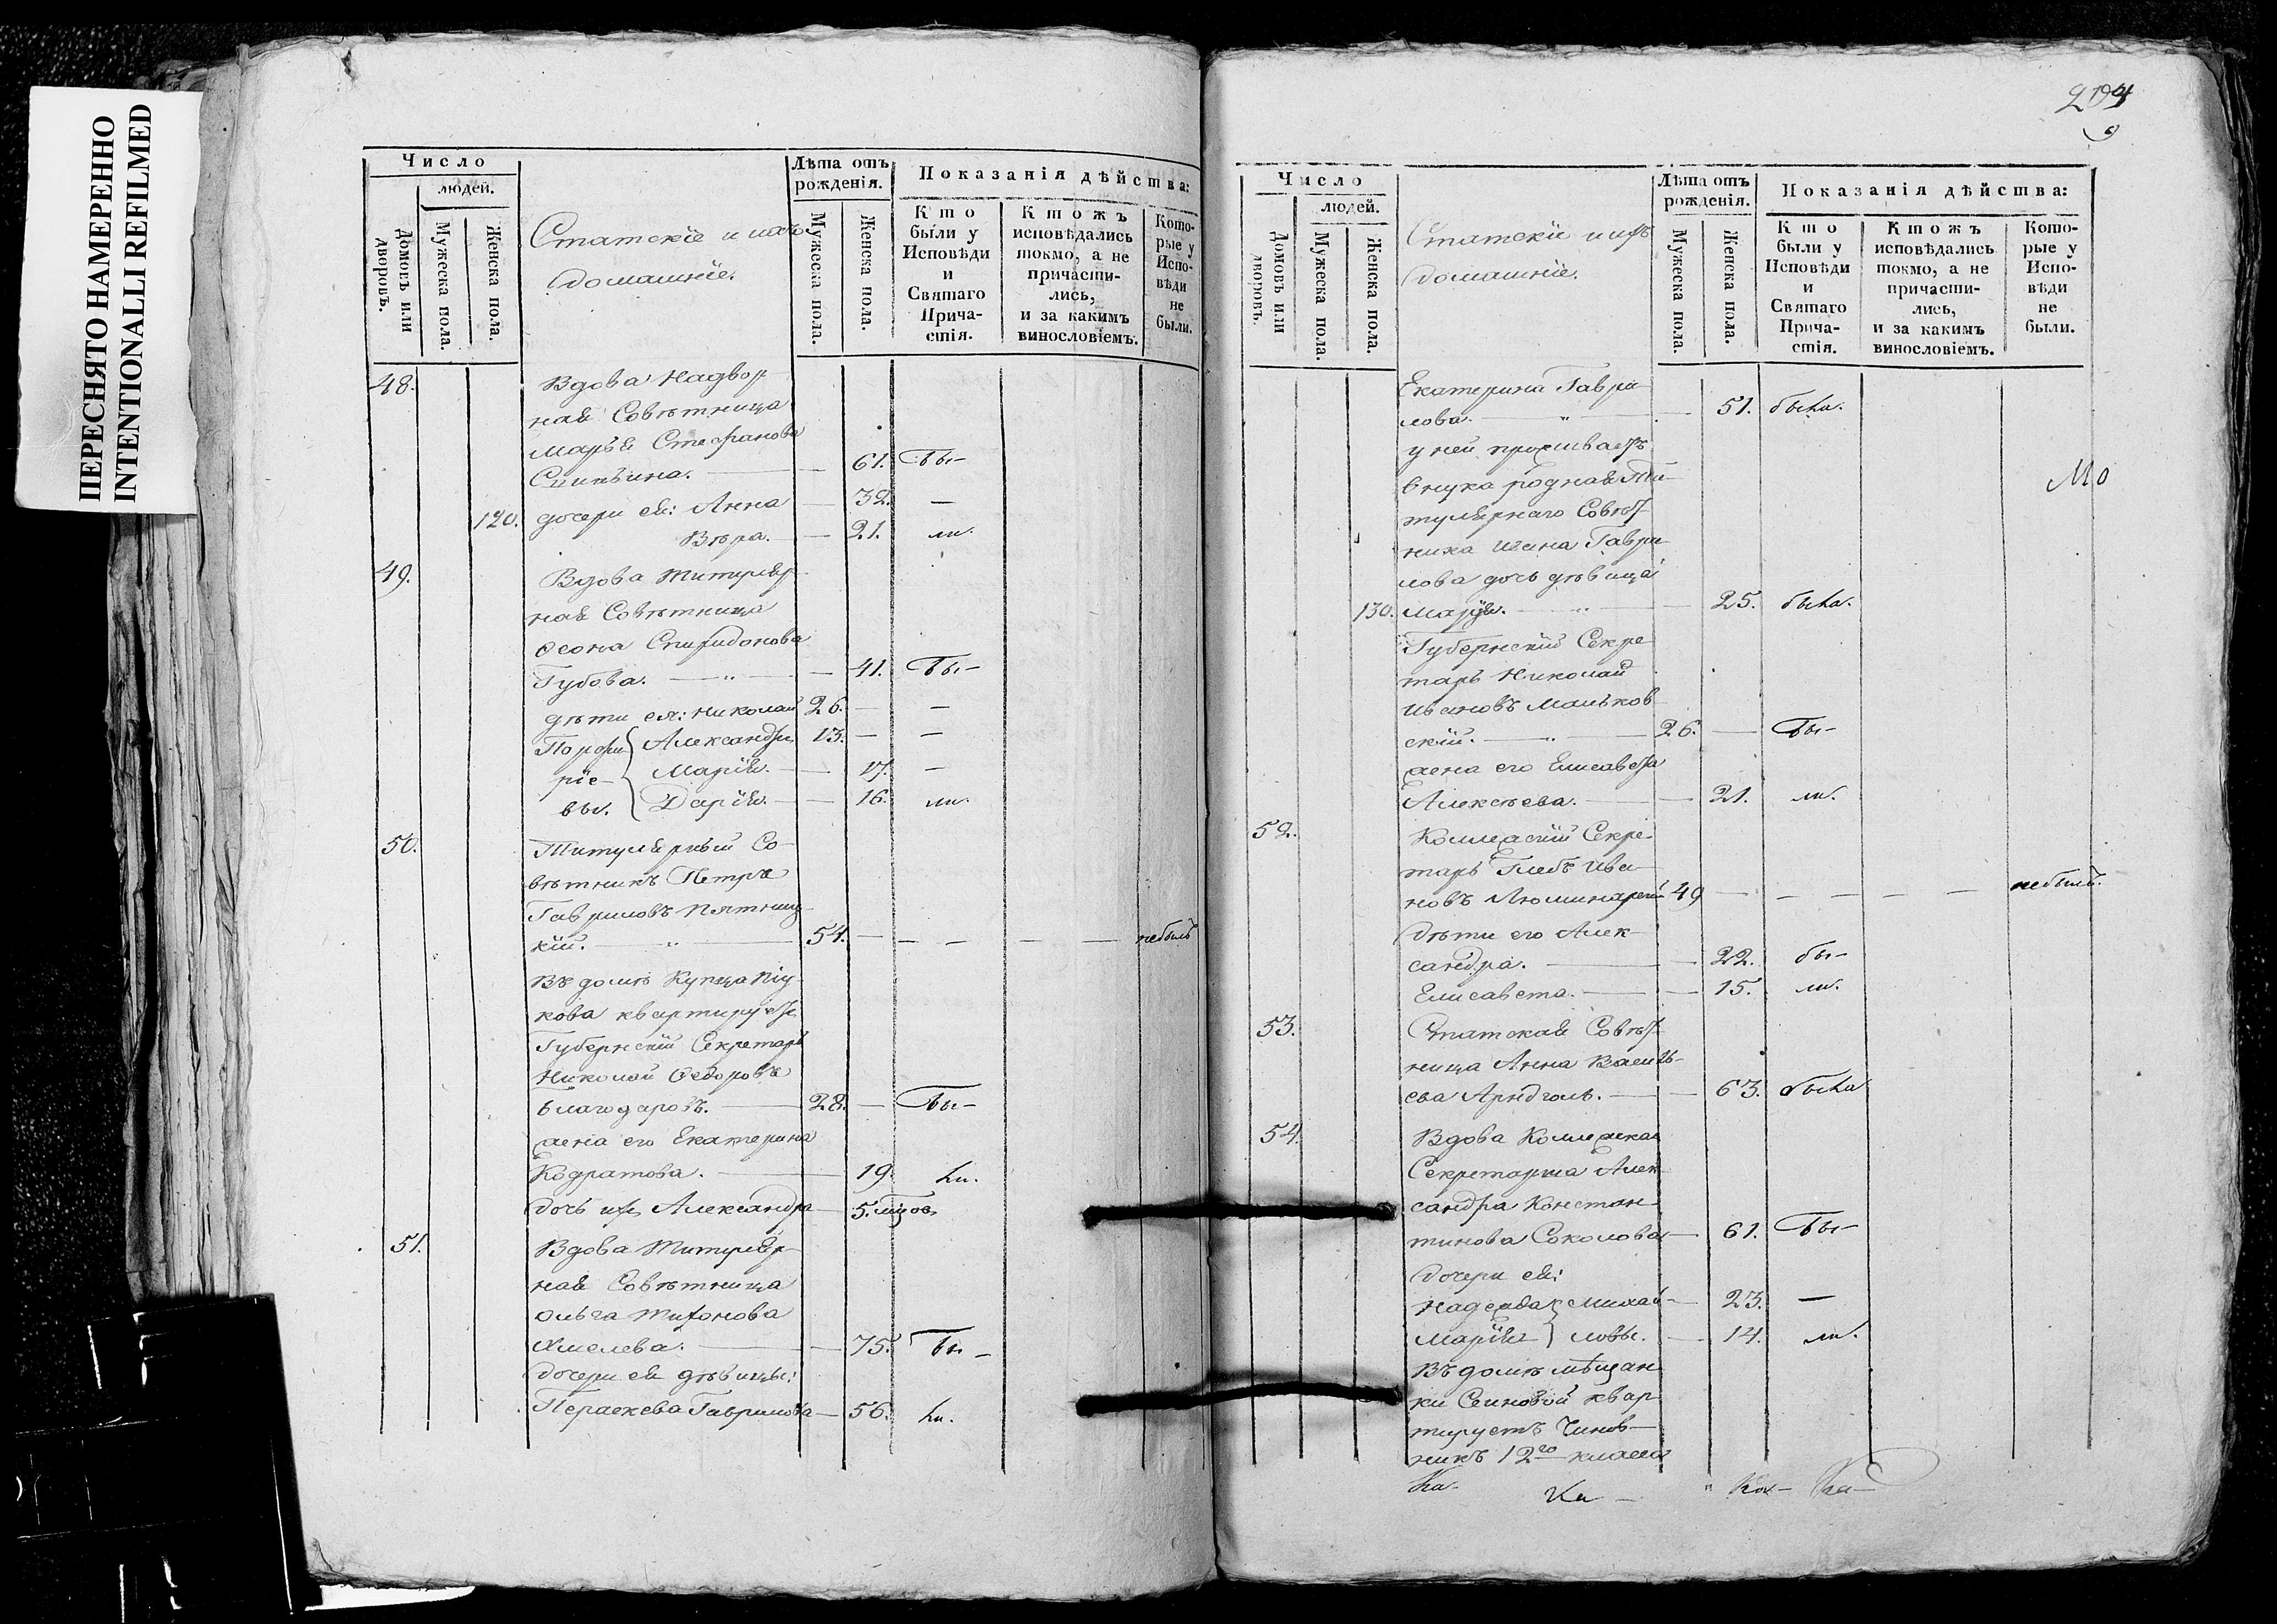 ПЕРЕСНЯТО НАМЕРЕННО
INTENTIONALLI REFILMED
Число
людей.
Домовъ или дворовъ.
Мужеска пола.
Женска пола.
Статскіе и ихъ
домашніе.
Лѣта отъ рожденія.
Мужеска пола.
Женска пола.
Показанія дѣйства:
Кто были у Исповѣди и Святаго Прича-стія.
Ктожъ исповѣдались токмо, а не причасти-лись, и за какимъ винословіемъ.
Кото-рые у Испо-вѣди не были.
48. Вдова Надвор-
ная Совѣтница
Марья Стефанова
61. Бы-
120. дочери ея: Анна — 32. —
Вѣра. — 21. ли.
49. Вдова Титуляр-
ная Совѣтница
Ѳеона Спиридонова
Губова. — „ — 41. Бы-
дѣти ея: Николай 26. — —
Порфи- { Александръ 13. — —
ріе- { Марія. — 17. —
вы. { Дарія. — 16. ли.
50. Титулярный Со-
вѣтникъ Петръ
Гавриловъ Пятниц-
кій. — „ — 54. — — — — — небылъ
Въ домѣ Купца
кова квартируетъ
Губернскій Секретарь
Николай Ѳедоровъ
Благодаровъ. — 28. — Бы-
жена его Екатерина
Кодратова. — 19. ли.
дочь ихъ Александра — 5. мцов.
51. Вдова Титуляр-
ная Совѣтница
Ольга Тихонова
Хмелева. — 75. Бы-
дочери ея дѣвицы:
Параскева Гаврилова — 56. ли.
204
Число
людей.
Домовъ или дворовъ.
Мужеска пола.
Женска пола.
Статскіе и ихъ
домашніе.
Лѣта отъ рожденія.
Мужеска пола.
Женска пола.
Показанія дѣйства:
Кто были у Исповѣди и Святаго Прича-стія.
Ктожъ исповѣдались токмо, а не причасти-лись, и за какимъ винословіемъ.
Кото-рые у Испо-вѣди не были.
Екатерина Гаври-
лова. — „ — 51. была.
у ней проживаетъ
внука родная Ти-
тулярнаго Совѣт-
ника Ивана Гаври-
лова дочь дѣвица
130. Марія. — „ — 25. была.
Губернскій Секре-
тарь Николай
Ивановъ Маньков-
скій. — „ — 26. — Бы-
жена его Елисавета
Алексѣева. — 21. ли.
52. Коллежскій Секре-
тарь Глебъ Ива-
новъ 49 — — — — — небылъ.
Дѣти его Алек-
сандра. — 22. бы-
Елисавета. — 15. ли.
53. Статская Совѣт-
ница Анна Василь-
ева — 63. была
54. Вдова Коллежская
Секретарша Алек-
сандра Констан-
тинова Соколова — 61. Бы-
Дочери ея:
Надежда } Михай- — 23. —
Марія } ловы. — 14. ли.
Въ домѣ мѣщан-
ки квар-
тируетъ Чинов-
никъ 12го класса